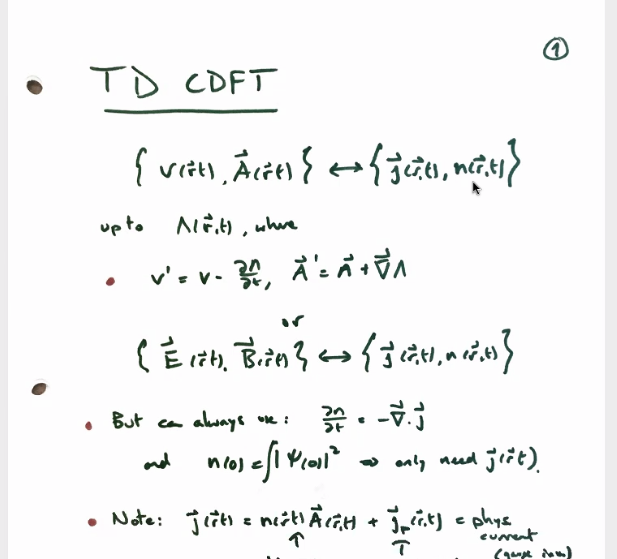 ①
TD CDFT
{ v(r⃗t), A⃗(r⃗t) } ↔ { j⃗(r⃗,t), n(r⃗,t) }
up to Λ(r⃗,t), where
• v' = v - ∂Λ/∂t, A⃗' = A⃗ + ∇⃗Λ
or
{ E⃗(r⃗t), B⃗(r⃗t) } ↔ { j⃗(r⃗,t), n(r⃗,t) }
• But can always use: ∂n/∂t = -∇⃗.j⃗
and n(0) = ∫|Ψ(0)|² ⇒ only need j⃗(r⃗t).
• Note: j⃗(r⃗t) = n(r⃗t) A⃗(r⃗,t) + j⃗ₚ(r⃗,t) = phys
↑ ↑ current